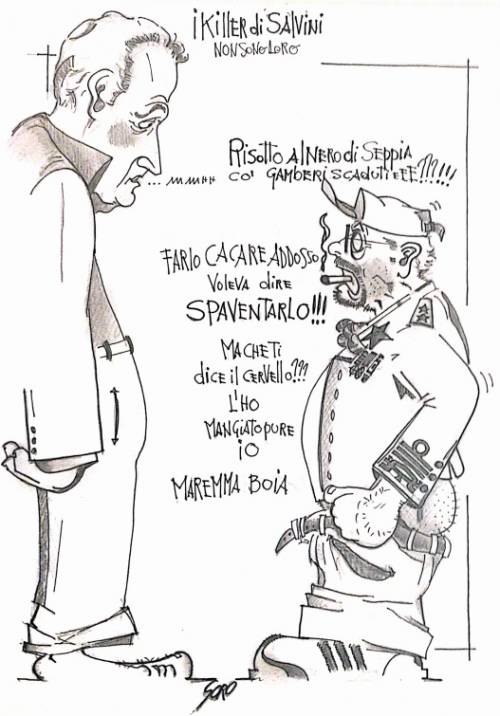 i KiLLER di SALViNi
NON SONO LORO
... MMMHH
RiSOTTO Al NERO di SEPPiA
CO' GAMBERi SCADUTi EEE???!!!!
FARLO CACARE ADDOSSO
VOLEVA diRE
SPAVENTARLO!!!
MA CHE Ti
diCE iL CERVELLO???
L'HO
MANGiATO PURE
iO
MAREMMA BOiA
SORO